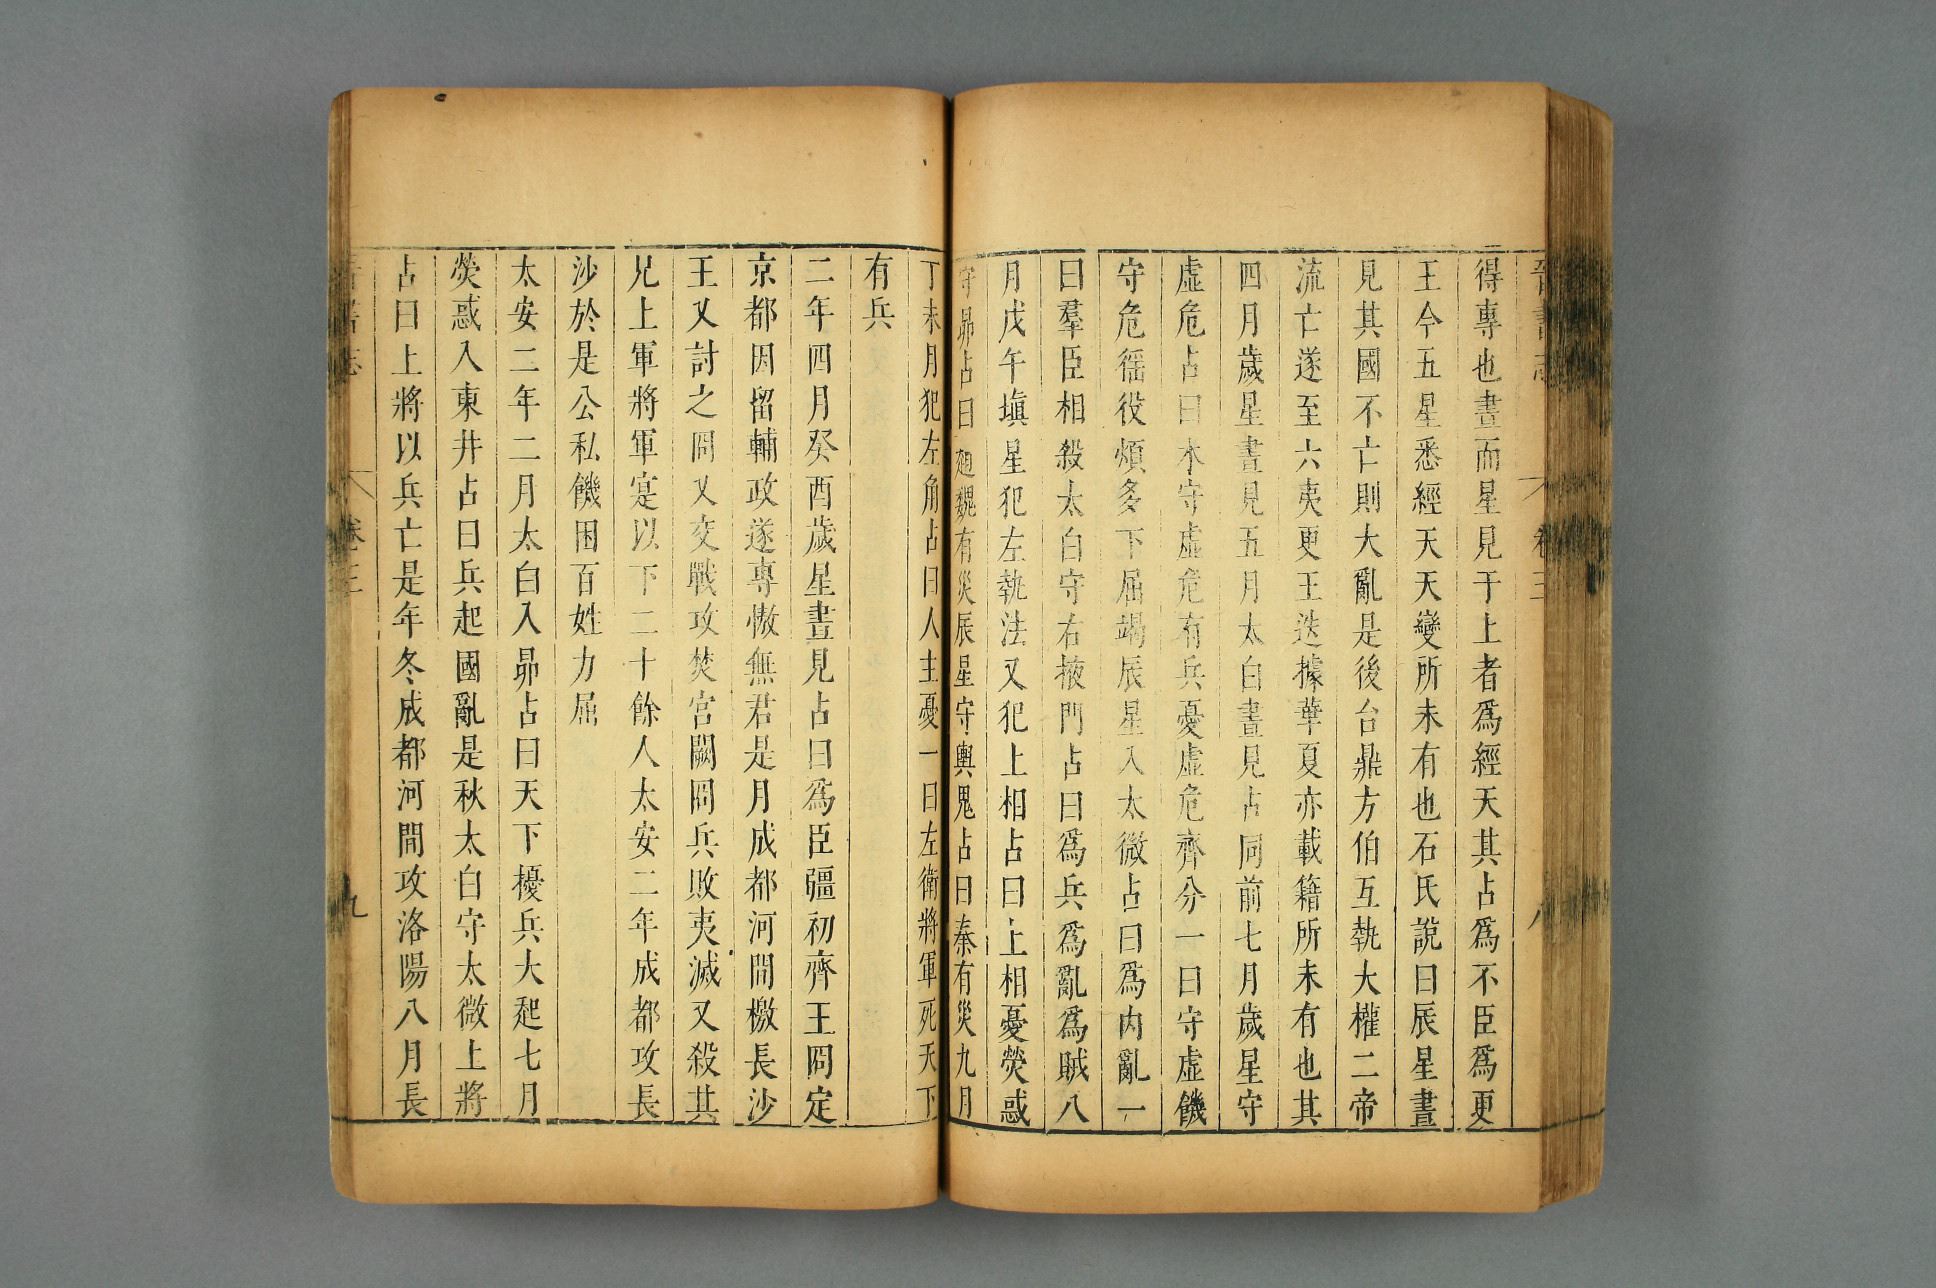 晉書志 卷三 八
得專也晝而星見于上者爲經天其占爲不臣爲更
王今五星悉經天天變所未有也石氏說曰辰星晝
見其國不亡則大亂是後台鼎方伯互執大權二帝
流亡遂至六夷更王迭據華夏亦載籍所未有也其
四月歲星晝見五月太白晝見占同前七月歲星守
虛危占曰木守虛危有兵憂虛危齊分一曰守虛饑
守危徭役煩多下屈竭辰星入太微占曰爲內亂一
曰羣臣相殺太白守右掖門占曰爲兵爲亂爲賊八
月戊午塡星犯左執法又犯上相占曰上相憂熒惑
守昴占曰趙魏有災辰星守輿鬼占曰秦有災九月
丁未月犯左角占曰人主憂一曰左衛將軍死天下
有兵
二年四月癸酉歲星晝見占曰爲臣彊初齊王冏定
京都因留輔政遂專慠無君是月成都河間檄長沙
王乂討之冏乂交戰攻焚宮闕冏兵敗夷滅又殺其
兄上軍將軍寔以下二十餘人太安二年成都攻長
沙於是公私饑困百姓力屈
太安二年二月太白入昴占曰天下擾兵大起七月
熒惑入東井占曰兵起國亂是秋太白守太微上將
占曰上將以兵亡是年冬成都河間攻洛陽八月長
晉書志 卷三 九